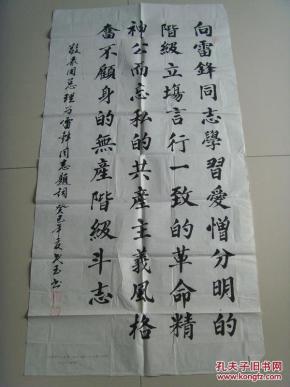 向雷鋒同志學習愛憎分明的
階級立場言行一致的革命精
神公而忘私的共產主義風格
奮不顧身的無產階級斗志
敬录周总理为雷鋒同志题词 癸巳年
孔夫子旧书网